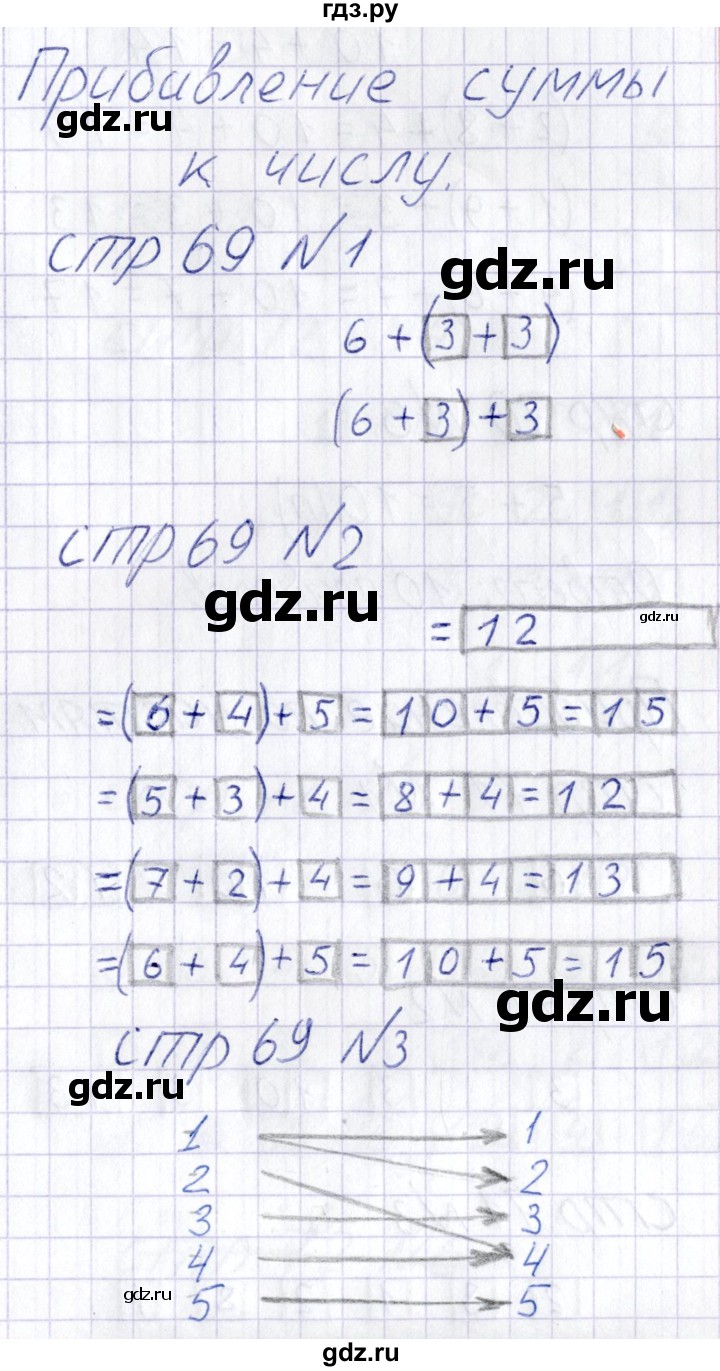 гдз.ру
Прибавление суммы
gdz.ru
к числу.
стр 69 №1
gdz.ru
6 + (3 + 3)
(6 + 3) + 3
стр 69 №2
gdz.ru
= 12
gdz.ru
= (6 + 4) + 5 = 10 + 5 = 15
= (5 + 3) + 4 = 8 + 4 = 12
= (7 + 2) + 4 = 9 + 4 = 13
= (6 + 4) + 5 = 10 + 5 = 15
gdz.ru
стр 69 №3
gdz.ru
1 1
2 2
3 3
4 4
gdz.ru
5 5
gdz.ru